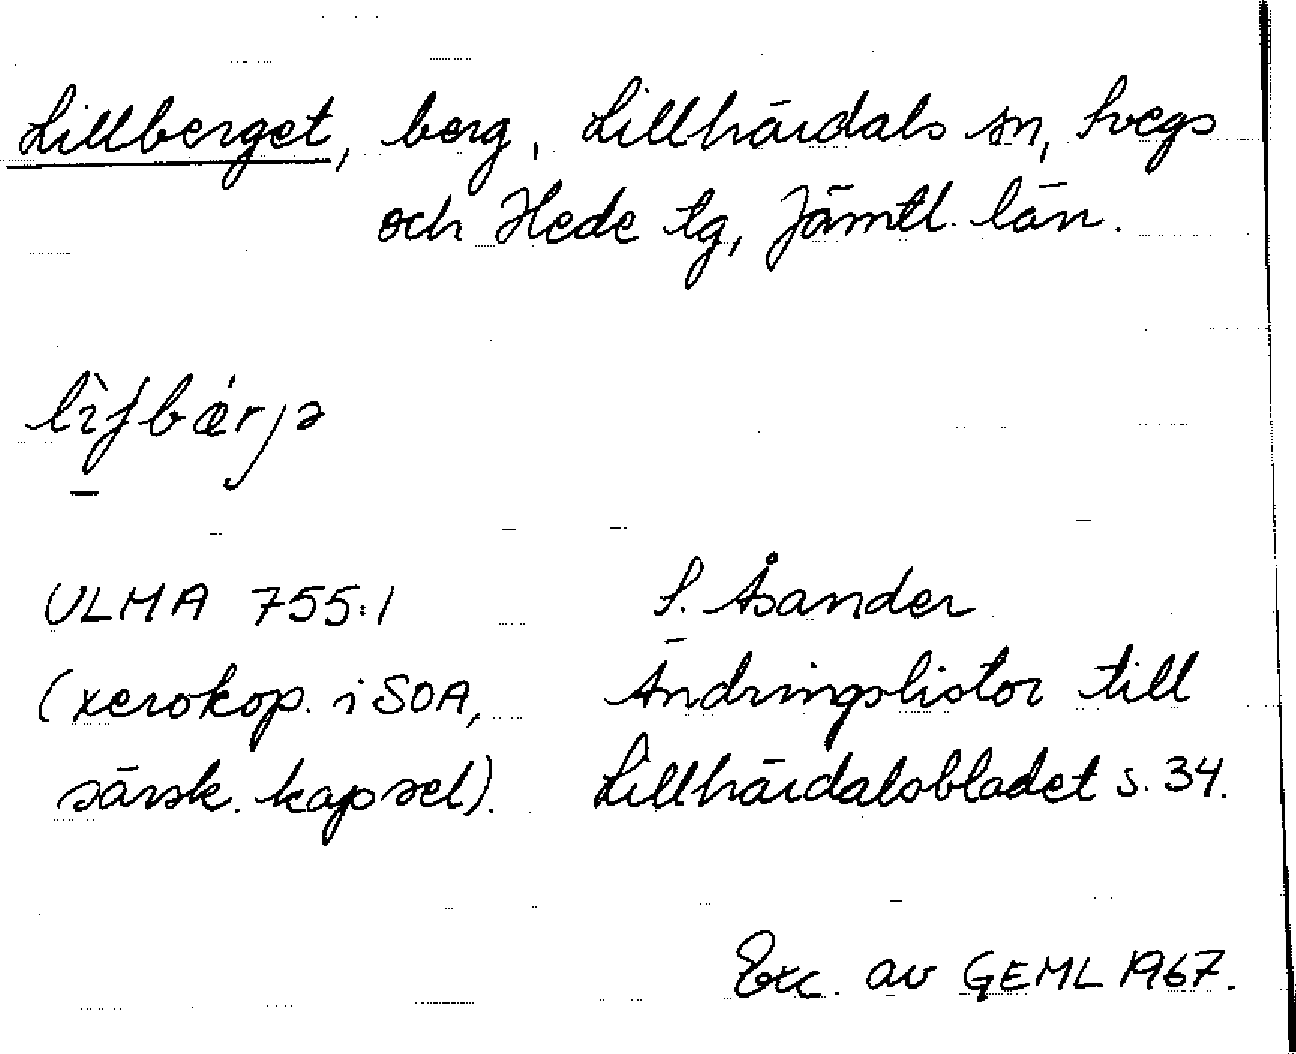 Lillberget, berg, Lillhärdals sn, Svegs
och Hede tg, Jämtl. län.
ULMA 755:1
(xerokop. i SOA,
särsk. kapsel).
S. Åsander
Ändringslistor till
Lillhärdalsbladet s. 34.
Exc. av GEML 1967.